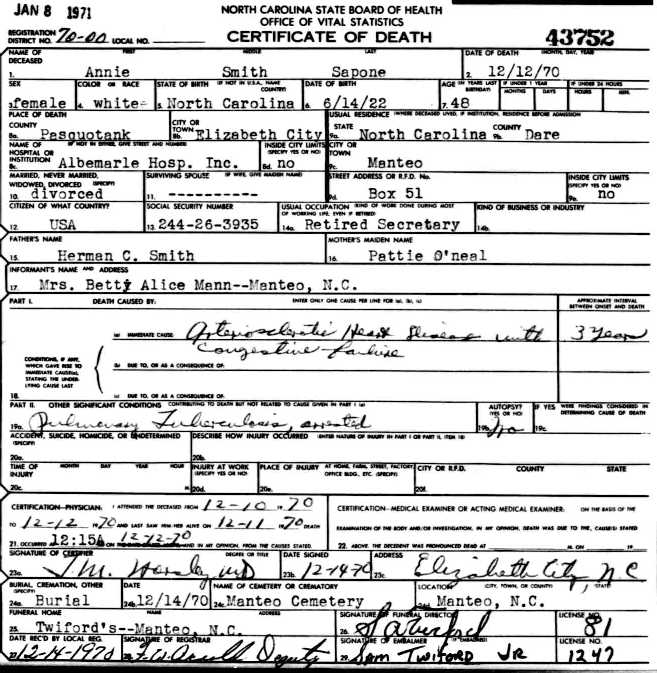 JAN 8 1971
NORTH CAROLINA STATE BOARD OF HEALTH
OFFICE OF VITAL STATISTICS
CERTIFICATE OF DEATH
REGISTRATION DISTRICT NO. 70-00 LOCAL NO.
43752
NAME OF DECEASED FIRST MIDDLE LAST DATE OF DEATH (MONTH, DAY, YEAR)
1. Annie Smith Sapone 2. 12/12/70
SEX COLOR OR RACE STATE OF BIRTH (IF NOT IN U.S.A., NAME COUNTRY) DATE OF BIRTH AGE (IN YEARS LAST BIRTHDAY) IF UNDER 1 YEAR MONTHS DAYS IF UNDER 24 HOURS HOURS MIN.
3. female 4. white 5. North Carolina 6. 6/14/22 7. 48
PLACE OF DEATH USUAL RESIDENCE (WHERE DECEASED LIVED, IF INSTITUTION, RESIDENCE BEFORE ADMISSION)
COUNTY CITY OR TOWN STATE COUNTY
8a. Pasquotank 8b. Elizabeth City 9a. North Carolina 9b. Dare
NAME OF HOSPITAL OR INSTITUTION (IF NOT IN EITHER, GIVE STREET AND NUMBER) INSIDE CITY LIMITS (SPECIFY YES OR NO) CITY OR TOWN
8c. Albemarle Hosp. Inc. 8d. no 9c. Manteo
MARRIED, NEVER MARRIED, WIDOWED, DIVORCED (SPECIFY) SURVIVING SPOUSE (IF WIFE, GIVE MAIDEN NAME) STREET ADDRESS OR R.F.D. No. INSIDE CITY LIMITS (SPECIFY YES OR NO)
10. divorced 11. ---------- 9d. Box 51 9e. no
CITIZEN OF WHAT COUNTRY? SOCIAL SECURITY NUMBER USUAL OCCUPATION (KIND OF WORK DONE DURING MOST OF WORKING LIFE, EVEN IF RETIRED) KIND OF BUSINESS OR INDUSTRY
12. USA 13. 244-26-3935 14a. Retired Secretary 14b.
FATHER'S NAME MOTHER'S MAIDEN NAME
15. Herman C. Smith 16. Pattie O'neal
INFORMANT'S NAME AND ADDRESS
17. Mrs. Betty Alice Mann--Manteo, N.C.
PART I. DEATH CAUSED BY: ENTER ONLY ONE CAUSE PER LINE FOR (a), (b), (c) APPROXIMATE INTERVAL BETWEEN ONSET AND DEATH
(a) IMMEDIATE CAUSE Arteriosclerotic Heart Disease with 3 years
Congestive failure
CONDITIONS, IF ANY, WHICH GAVE RISE TO IMMEDIATE CAUSE(a), STATING THE UNDERLYING CAUSE LAST
(b) DUE TO, OR AS A CONSEQUENCE OF:
18. (c) DUE TO, OR AS A CONSEQUENCE OF:
PART II. OTHER SIGNIFICANT CONDITIONS CONTRIBUTING TO DEATH BUT NOT RELATED TO CAUSE GIVEN IN PART I (a) AUTOPSY? (YES OR NO) IF YES WERE FINDINGS CONSIDERED IN DETERMINING CAUSE OF DEATH
19a. Pulmonary Tuberculosis, arrested 19b. No 19c.
ACCIDENT, SUICIDE, HOMICIDE, OR UNDETERMINED (SPECIFY) DESCRIBE HOW INJURY OCCURRED (ENTER NATURE OF INJURY IN PART I OR PART II, ITEM 18)
20a. 20b.
TIME OF INJURY MONTH DAY YEAR HOUR INJURY AT WORK (SPECIFY YES OR NO) PLACE OF INJURY AT HOME, FARM, STREET, FACTORY, OFFICE BLDG., ETC. (SPECIFY) CITY OR R.F.D. COUNTY STATE
20c. m. 20d. 20e. 20f.
CERTIFICATION-PHYSICIAN: I ATTENDED THE DECEASED FROM 12-10 1970 CERTIFICATION-MEDICAL EXAMINER OR ACTING MEDICAL EXAMINER: ON THE BASIS OF THE
TO 12-12 1970 AND LAST SAW HIM/HER ALIVE ON 12-11 1970 DEATH EXAMINATION OF THE BODY AND/OR INVESTIGATION, IN MY OPINION, DEATH WAS DUE TO THE, CAUSE(S) STATED
21. OCCURRED 12:15A 12-12-70 AND IN MY OPINION, FROM THE CAUSES STATED. 22. ABOVE. THE DECEDENT WAS PRONOUNCED DEAD AT M. ON 19
SIGNATURE OF CERTIFIER DEGREE OR TITLE DATE SIGNED ADDRESS
23a. MD 23b. 12-14-70 23c. Elizabeth City, N C
BURIAL, CREMATION, OTHER (SPECIFY) DATE NAME OF CEMETERY OR CREMATORY LOCATION (CITY, TOWN, OR COUNTY) (STATE)
24a. Burial 24b. 12/14/70 24c. Manteo Cemetery 24d. Manteo, N.C.
FUNERAL HOME NAME ADDRESS SIGNATURE OF FUNERAL DIRECTOR LICENSE NO.
25. Twiford's--Manteo, N.C. 26. 81
DATE REC'D BY LOCAL REG. SIGNATURE OF REGISTRAR SIGNATURE OF EMBALMER (IF EMBALMED) LICENSE NO.
27. 12-14-1970 28. Deputy 29. SAM TWIFORD JR 1247